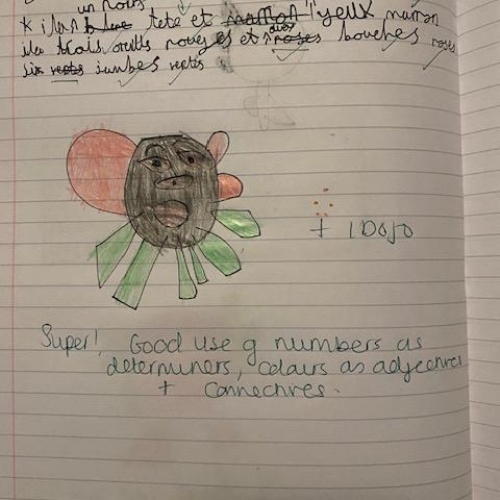 un noir
* il a tete et yeux marron
ila trois oreilles rouges et deux bouches roses
six jambes vertes
+ 1 DOJO
Super! Good use of numbers as
determiners, colours as adjectives
+ connectives.